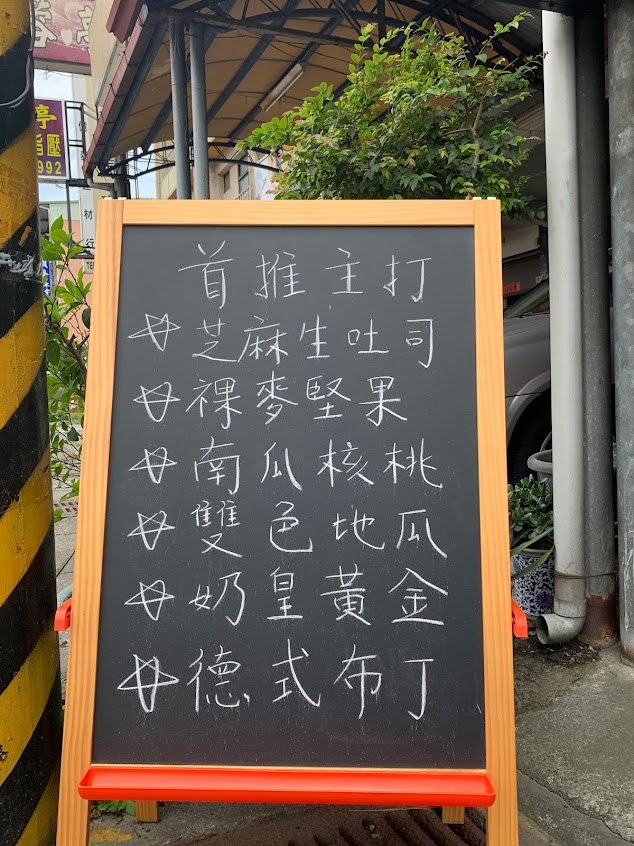 亭
指壓
992
材
行
TE
首推主打
☆芝麻生吐司
☆裸麥堅果
☆南瓜核桃
☆雙色地瓜
☆奶皇黃金
☆德式布丁